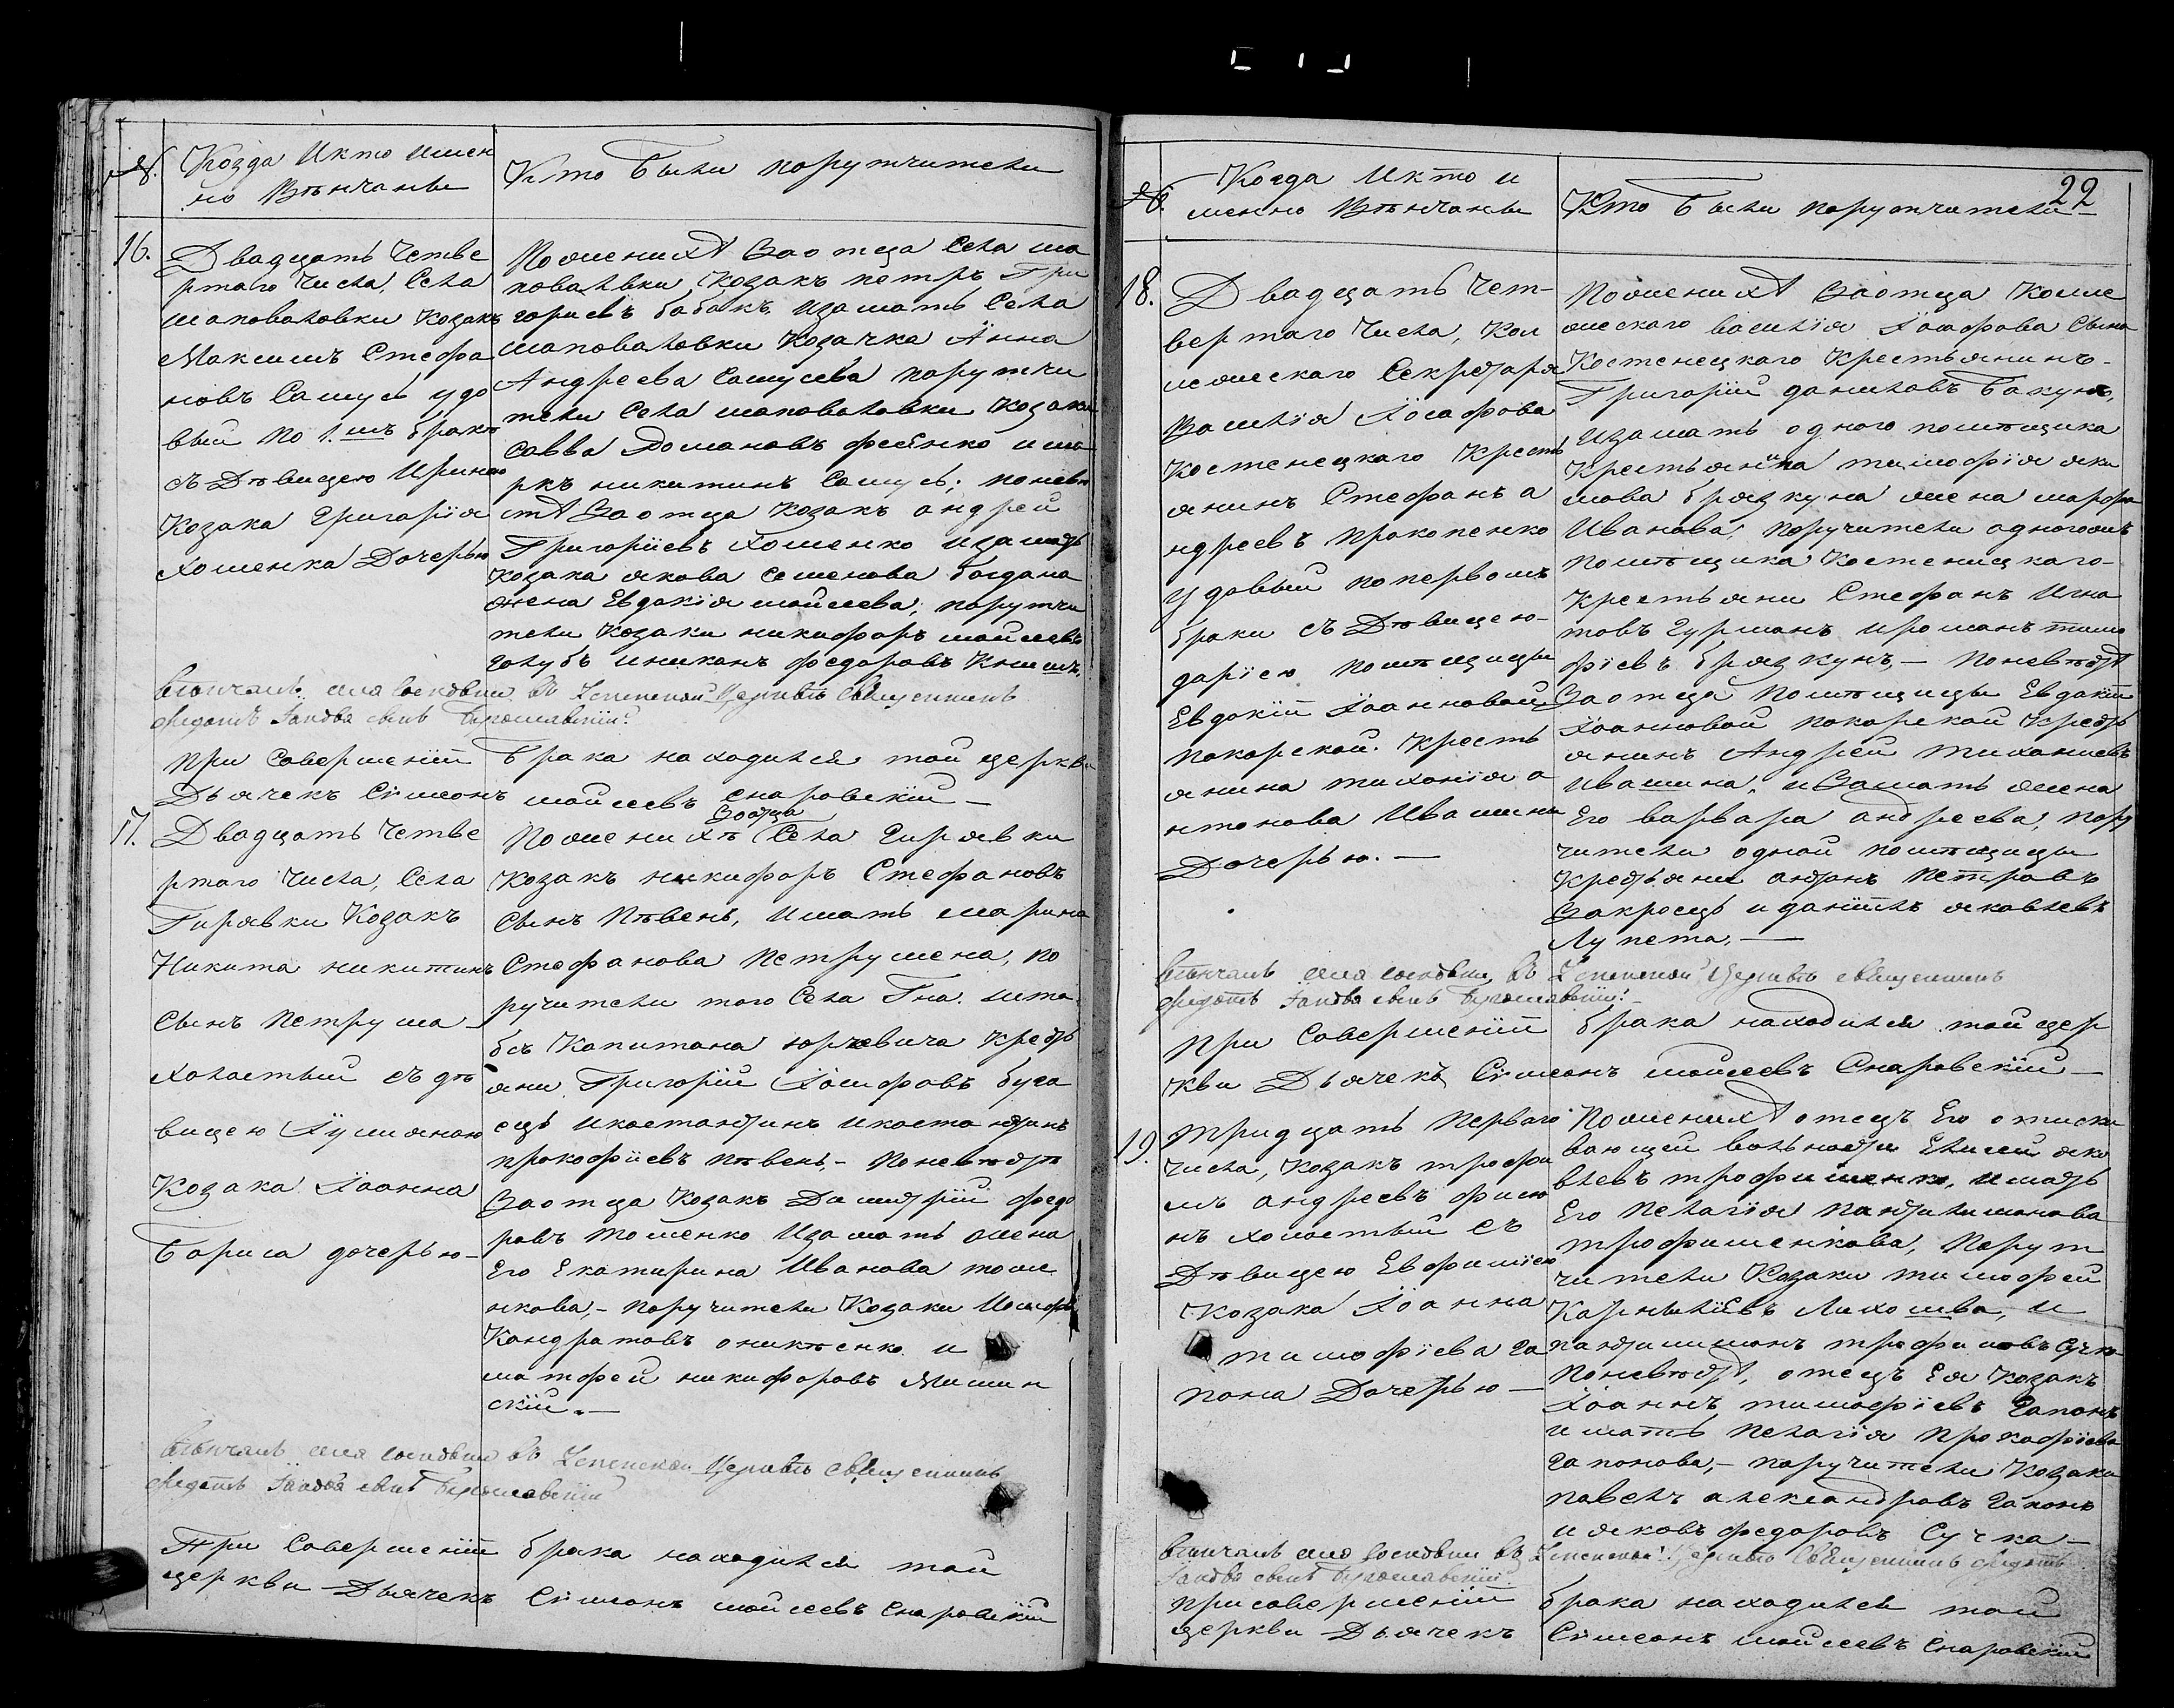 №. Когда И кто имен
но Вѣнчаны
Кто были порутчители
16. Двадцать Четве
ртаго Числа, Села
Шаповаловки Козакъ
Максимъ Стефа
новъ Самусь удо
вый по 1.мъ бракѣ
съ Дѣвицею Ириною
Козака Григорія
Хоменка Дочерью
По женихѣ За отца Села ша
поваловки, Козакъ петръ Гри
горіевъ бабакъ, иза мать Села
шаповаловки Козачка Анна
Андреева Самусева порутчи
тели Села шаповаловки козаки
Савва Домановъ и ма
ркъ никитинъ Самусь; по невѣ
стѣ За отца Козакъ андрей
Григоріевъ Хоменко иза мать
козака якова Семенова богдана
жена Евдокія моисеева, порутчи
тели Козаки никифоръ моисеевъ
голубъ иниконъ федоровъ Книшъ.
вѣнчалъ въ Успенской Церквѣ Священникъ
Федотъ сынъ
при Совершеніи Брака находился той церкви
Дьячекъ Сімеонъ моисеевъ Снаровскій —
17. Двадцать Четве
ртаго Числа, Села
Гирявки Козакъ
Никита никитинъ
Сынъ Петруша
холостый съ дѣ
вицею Іуліяною
Козака Іоанна
Бориса дочерью —
За отца
По женихѣ Села Гирявки
Козакъ никифоръ Стефановъ
Сынъ Пѣвень, и мать марина
Стефанова Петрушена, по
ручители того Села Гна. шта
бсъ Капитана юркевича крестъ
яни Григорій Іосифовъ буга
ецъ и константинъ
прокофіевъ пѣвень, — По невѣстѣ
За отца Козакъ Димитрій федо
ровъ Томенко Иза мать жена
Его Екатирина Иванова томе
нкова, — поручители Козаки Иосифъ
Кондратовъ оникѣенко и
матфей никифоровъ Мишин
скій. —
вѣнчалъ въ Успенской Церквѣ Священникъ
Федотъ сынъ
При Совершеніи брака находился той
церкви Дьячекъ Сімеонъ моисеевъ Снаровскій
22
№. Когда И кто и
менно Вѣнчаны
Кто были порутчители
18. Двадцать Чет-
вертаго Числа, Кол
лежскаго Секретаря
Василія Іосафова
костенецкаго Кресть
янинъ Стефанъ а
ндреевъ прокопенко
удовый по первомъ
браки съ Дѣвицею —
даріею помѣщицы
Евдокіи Іоанновой
покорской. Кресть
янина тихонія а
нтонова Ивашины
Дочерью. —
По женихѣ За отца Колле
жскаго василія Іоасафова Сына
Костенецкаго Крестьянинъ —
Григорій даниловъ Бакунъ,
иза мать одного помѣщика
Крестьянина тимофія яки
мова брязкуна жена марфа
Иванова, поручители одногожъ
помѣщика Костенецкаго —
Крестьяни Стефанъ Игна
товъ Гурманъ и романъ тимо
фіевъ брязкунъ, — По невѣстѣ
За отца Помѣщицы Евдокіи
Іоанновой покорской Кресть
янинъ Андрей тихоніевъ
Ивашина, и За мать жена
Его варвара андреева, пору
чители одной помѣщицы
Крестьяни антонъ петровъ
Закроецъ и даніилъ яковлевъ
Лупета. —
вѣнчалъ въ Успенской Церквѣ Священникъ
Федотъ сынъ
При Совершеніи брака находился той цер
кви Дьячекъ Сімеонъ моисеевъ Снаровскій —
19. Тридцать Перваго
Числа, Козакъ трофи
мъ андреевъ
холостый съ
Дѣвицею Евфиміею
Козака Іоанна
тимофіева га
пона Дочерью —
По женихѣ отецъ Его отиски
вающій вольности Елисей яко
влевъ трофименко, и мать
Его Пелагія Пантилимонова
трофименкова, Порут
чители Козаки тимофей
Карниліевъ Лихошва, и
пантилимонъ трофимовъ Сучко
По невѣстѣ, отецъ Ея Козакъ
Іоаннъ тимофіевъ Гапонъ
и мать Пелагія Прокофіева
Гапонова, — поручители Козаки
павелъ александровъ Гапонъ
и яковъ федоровъ Сучка —
вѣнчалъ въ Успенской Церквѣ Священникъ Федотъ
сынъ
при совершеніи брака находился той
церкви Дьячекъ Сімеонъ моисеевъ Снаровскій